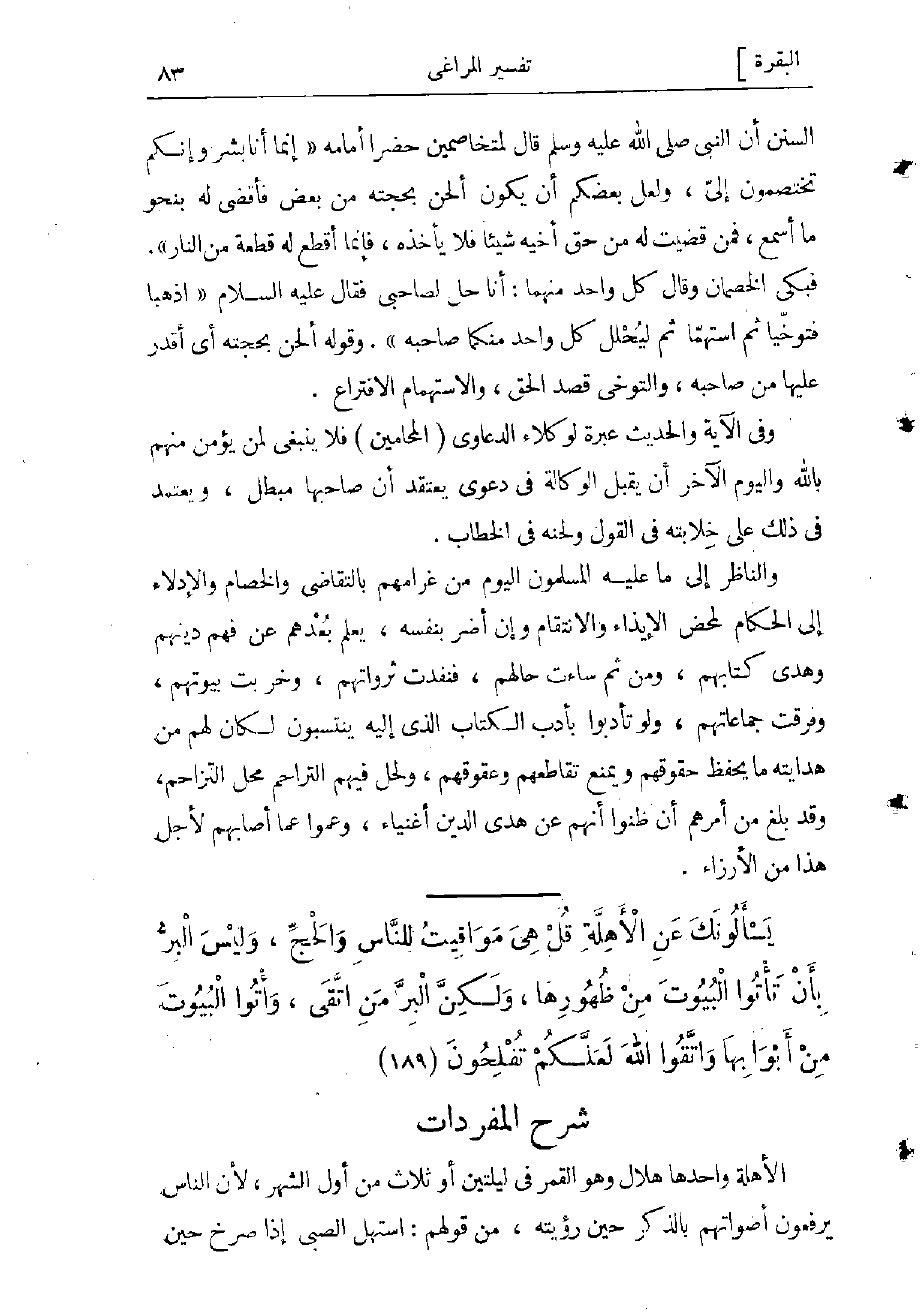 البقرة ] تفسير المراغى ٨٣
السنن أن النبى صلى الله عليه وسلم قال لمتخاصمين حضرا أمامه « إنما أنا بشر وإنكم
تختصمون إلىّ ، ولعل بعضكم أن يكون ألحن بحجته من بعض فأقضى له بنحو
ما أسمع ، فمن قضيت له من حق أخيه شيئا فلا يأخذه ، فإنما أقطع له قطعة من النار».
فبكى الخصمان وقال كل واحد منهما : أنا حل لصاحبى فقال عليه السلام « اذهبا
فتوخّيا ثم استهمّا ثم ليُحْلل كل واحد منكما صاحبه » . وقوله ألحن بحجته أى أقدر
عليها من صاحبه ، والتوخى قصد الحق ، والاستهمام الاقتراع .
وفى الآية والحديث عبرة لوكلاء الدعاوى ( المحامين ) فلا ينبغى لمن يؤمن منهم
بالله واليوم الآخر أن يقبل الوكالة فى دعوى يعتقد أن صاحبها مبطل ، ويعتمد
فى ذلك على خِلابته فى القول ولحنه فى الخطاب .
والناظر إلى ما عليه المسلمون اليوم من غرامهم بالتقاضى والخصام والإدلاء
إلى الحكام لمحض الإيذاء والانتقام وإن أضر بنفسه ، يعلم بُعْدهم عن فهم دينهم
وهدى كتابهم ، ومن ثم ساءت حالهم ، فنفدت ثرواتهم ، وخربت بيوتهم ،
وفرقت جماعاتهم ، ولو تأدبوا بأدب الكتاب الذى إليه ينتسبون لكان لهم من
هدايته ما يحفظ حقوقهم ويمنع تقاطعهم وعقوقهم ، ولحل فيهم التراحم محل التزاحم،
وقد بلغ من أمرهم أن ظنوا أنهم عن هدى الدين أغنياء ، وعموا عما أصابهم لأجل
هذا من الأرزاء .
يَسْأَلُونَكَ عَنِ الْأَهِلَّةِ قُلْ هِىَ مَوَاقِيتُ لِلنَّاسِ وَالْحَجِّ ، وَلَيْسَ الْبِرُّ
بِأَنْ تَأْتُوا الْبُيُوتَ مِنْ ظُهُورِهَا ، وَلَكِنَّ الْبِرَّ مَنِ اتَّقَى ، وَأْتُوا الْبُيُوتَ
مِنْ أَبْوَابِهَا وَاتَّقُوا اللهَ لَعَلَّكُمْ تُفْلِحُونَ (١٨٩)
شرح المفردات
الأهلة واحدها هلال وهو القمر فى ليلتين أو ثلاث من أول الشهر ، لأن الناس
يرفعون أصواتهم بالذكر حين رؤيته ، من قولهم : استهل الصبى إذا صرخ حين